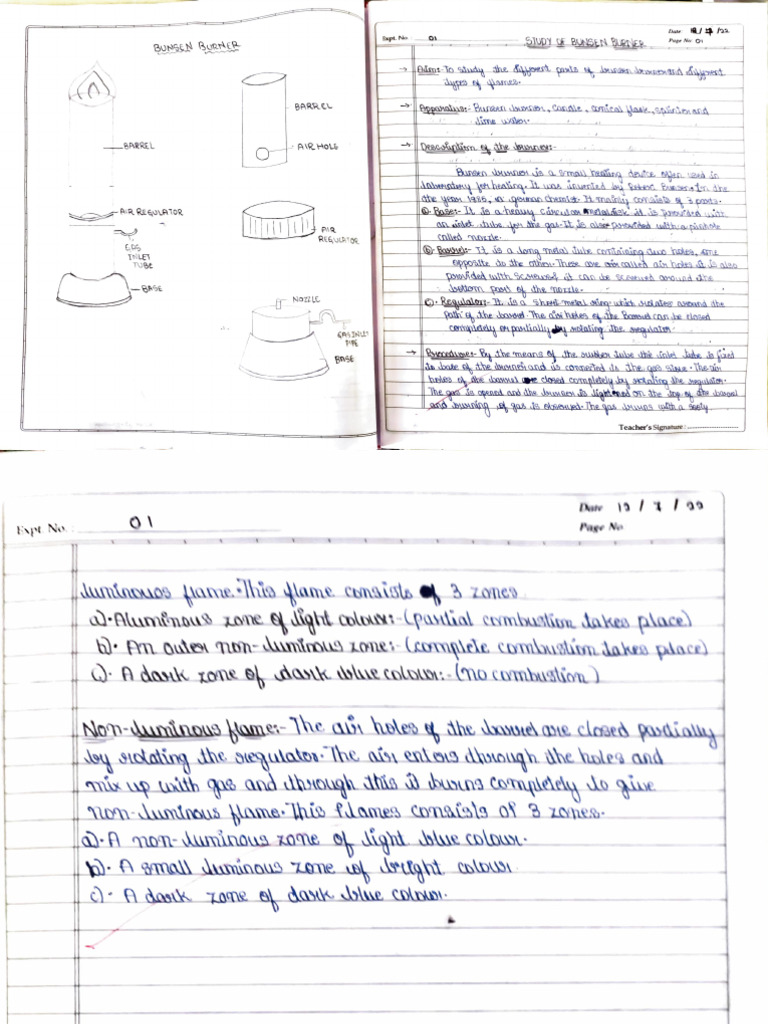 BUNSEN BURNER
BARREL
AIR REGULATOR
GAS
INLET
TUBE
BASE
BARREL
AIR HOLE
AIR
REGULATOR
NOZZLE
GAS INLET
PIPE
BASE
Expt. No. 01
Date 12/7/22
STUDY OF BUNSEN BURNER
Page No 01
→ Aim:- To study the different parts of bunsen and different
types of flames.
→ Apparatus:- Bunsen burner, candle, conical flask, splinter and
lime water.
→ Description of the burner:-
Bunsen burner is a small heating device often used in
laboratory for heating. It was invented by Robert in the
the year 1985, a german chemist. It mainly consists of 3 parts.
a). Base:- It is a heavy circular metal it is provided with
an inlet tube for the gas. It is also provided with a pinhole
called nozzle.
b). Barrel:- It is a long metal tube containing two holes, one
opposite to the other. These are called air holes it is also
provided with screws it can be screwed around the
bottom part of the nozzle.
c). Regulator:- It is a short metal ring which rotates around the
path of the barrel. The air holes of the Barrel can be closed
completely or partially by rotating the regulator.
→ Procedure:- By the means of the rubber tube the inlet tube is fixed
to base of the burner and is connected to the gas. The air
holes of the barrel are closed completely by rotating the regulator.
The gas is opened and the burner is light on the top of the barrel
and burning of gas is observed. The gas burns with a sooty
Teacher's Signature :
Expt. No. : 01
Date 12/7/22
Page No
luminous flame. This flame consists of 3 zones
a). Aluminous zone of light colour:- (partial combustion takes place)
b). An outer non-luminous zone:- (complete combustion takes place)
c). A dark zone of dark blue colour:- (no combustion)
Non-luminous flame:- The air holes of the barrel are closed partially
by rotating the regulator. The air enters through the holes and
mix up with gas and through this it burns completely to give
non-luminous flame. This flames consists of 3 zones.
a). A non-luminous zone of light blue colour.
b). A small luminous zone of bright colour
c). A dark zone of dark blue colour.